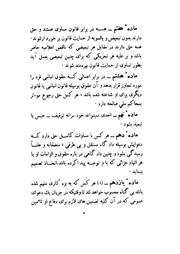 مادهٔ هفتم - همه در برابر قانون مساوی هستند و حق
دارند بدون تبعیض و بالسویه از حمایت قانون بر خوردار شوند.
همه حق دارند در مقابل هر تبعیضی که ناقض اعلامیه حاضر
باشد و بر علیه هر تحریکی که برای چنین تبعیضی بعمل آید
بطور تساوی از حمایت قانون بهره مند شوند.
مادهٔ هشتم - در برابر اعمالی که حقوق اساسی فرد را
مورد تجاوز قرار بدهد و آن حقوق بوسیله قانون اساسی یا قانون
دیگری برای او شناخته شده باشد، هر کس حق رجوع مؤثر
بمحاکم ملی صالحه دارد.
مادهٔ نهم - احدی نمیتواند خود سرانه توقیف، حبس یا
تبعید بشود.
مادهٔ دهم - هر کس با مساوات کامل حق دارد که
دعوایش بوسیله دادگاه مستقل و بی طرفی، منصفانه و علناً
رسیدگی بشود و چنین دادگاهی در باره حقوق و الزامات او یا
هر اتهام جزائی که به او توجه پیدا کرده باشد، اتخاذ تصمیم
بنماید.
مادهٔ یازدهم - (۱) هر کس که به بزه کاری متهم شده
باشد بی گناه محسوب خواهد شد تا وقتیکه در جریان یک دعوای
عمومی که در آن کلیه تضمین های لازم برای دفاع او تامین